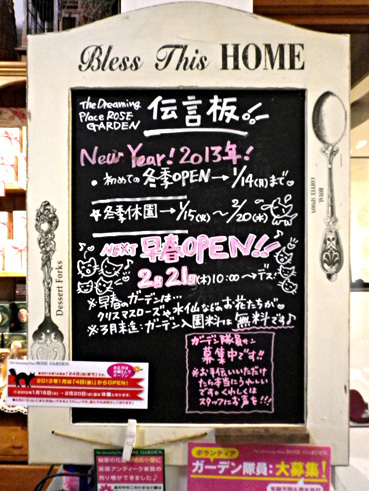 Bless This HOME
The Dreaming
Place ROSE
GARDEN
伝言板!!
New Year! 2013年!
・初めての冬季OPEN→1/14(月)まで
冬季休園→1/15(火)〜2/20(水)
NEXT 早春OPEN!!
2月21日(木)10:00→デス!
※早春のガーデンは…
クリスマスローズや水仙などのお花たちが♡
※3月末迄・ガーデン入園料は無料です♪
ガーデン隊員サン
募集中です!!
※お手伝いいただけ
たら本当にうれしい
です。くわしくは
スタッフにお声を!!
Dessert Forks
ROYAL
COFFEE SPOON
ROSE GARDEN
2013年1月は「4日(金)」からOPEN!
ボランティア
ガーデン隊員:大募集!